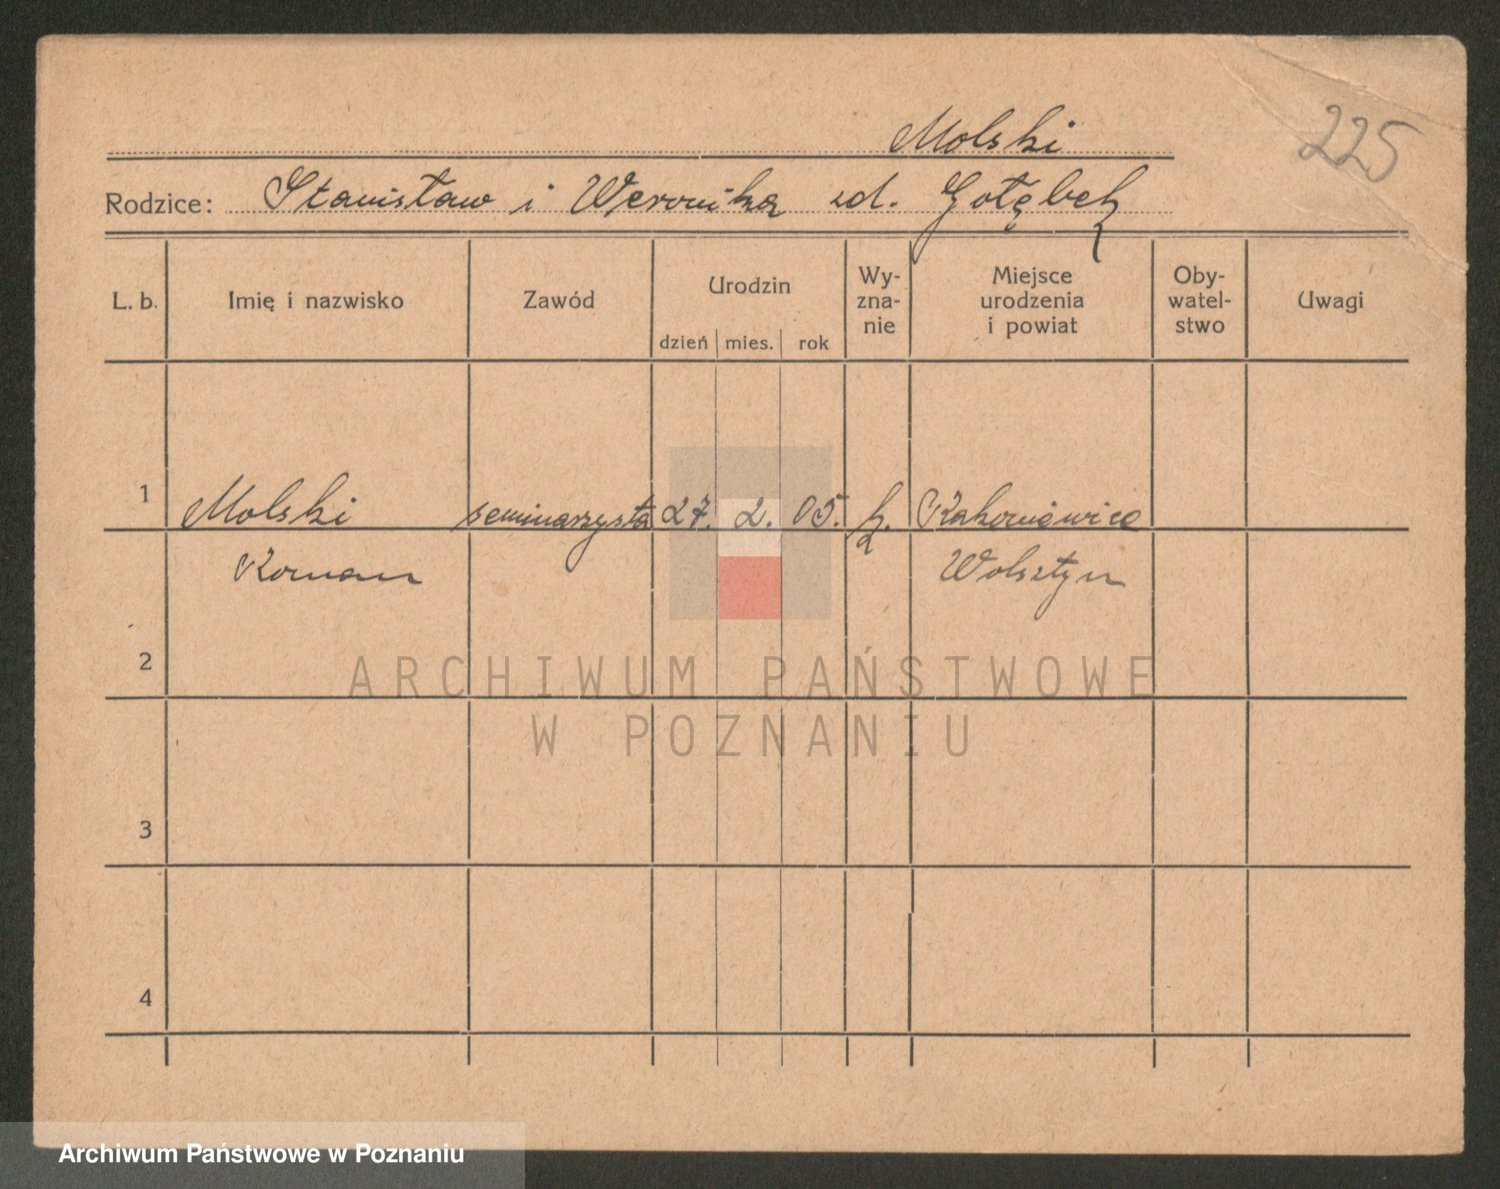 225
Molski
Rodzice: Stanisław i Weronika zd. Gołąbek
L. b. Imię i nazwisko Zawód Urodzin Wy-
zna-
nie Miejsce
urodzenia
i powiat Oby-
watel-
stwo Uwagi
dzień mies. rok
1 Molski seminarzysta 27. 2. 05. k. Rakoniewice
Roman Wolsztyn
2
ARCHIWUM PAŃSTWOWE
W POZNANIU
3
4
Archiwum Państwowe w Poznaniu